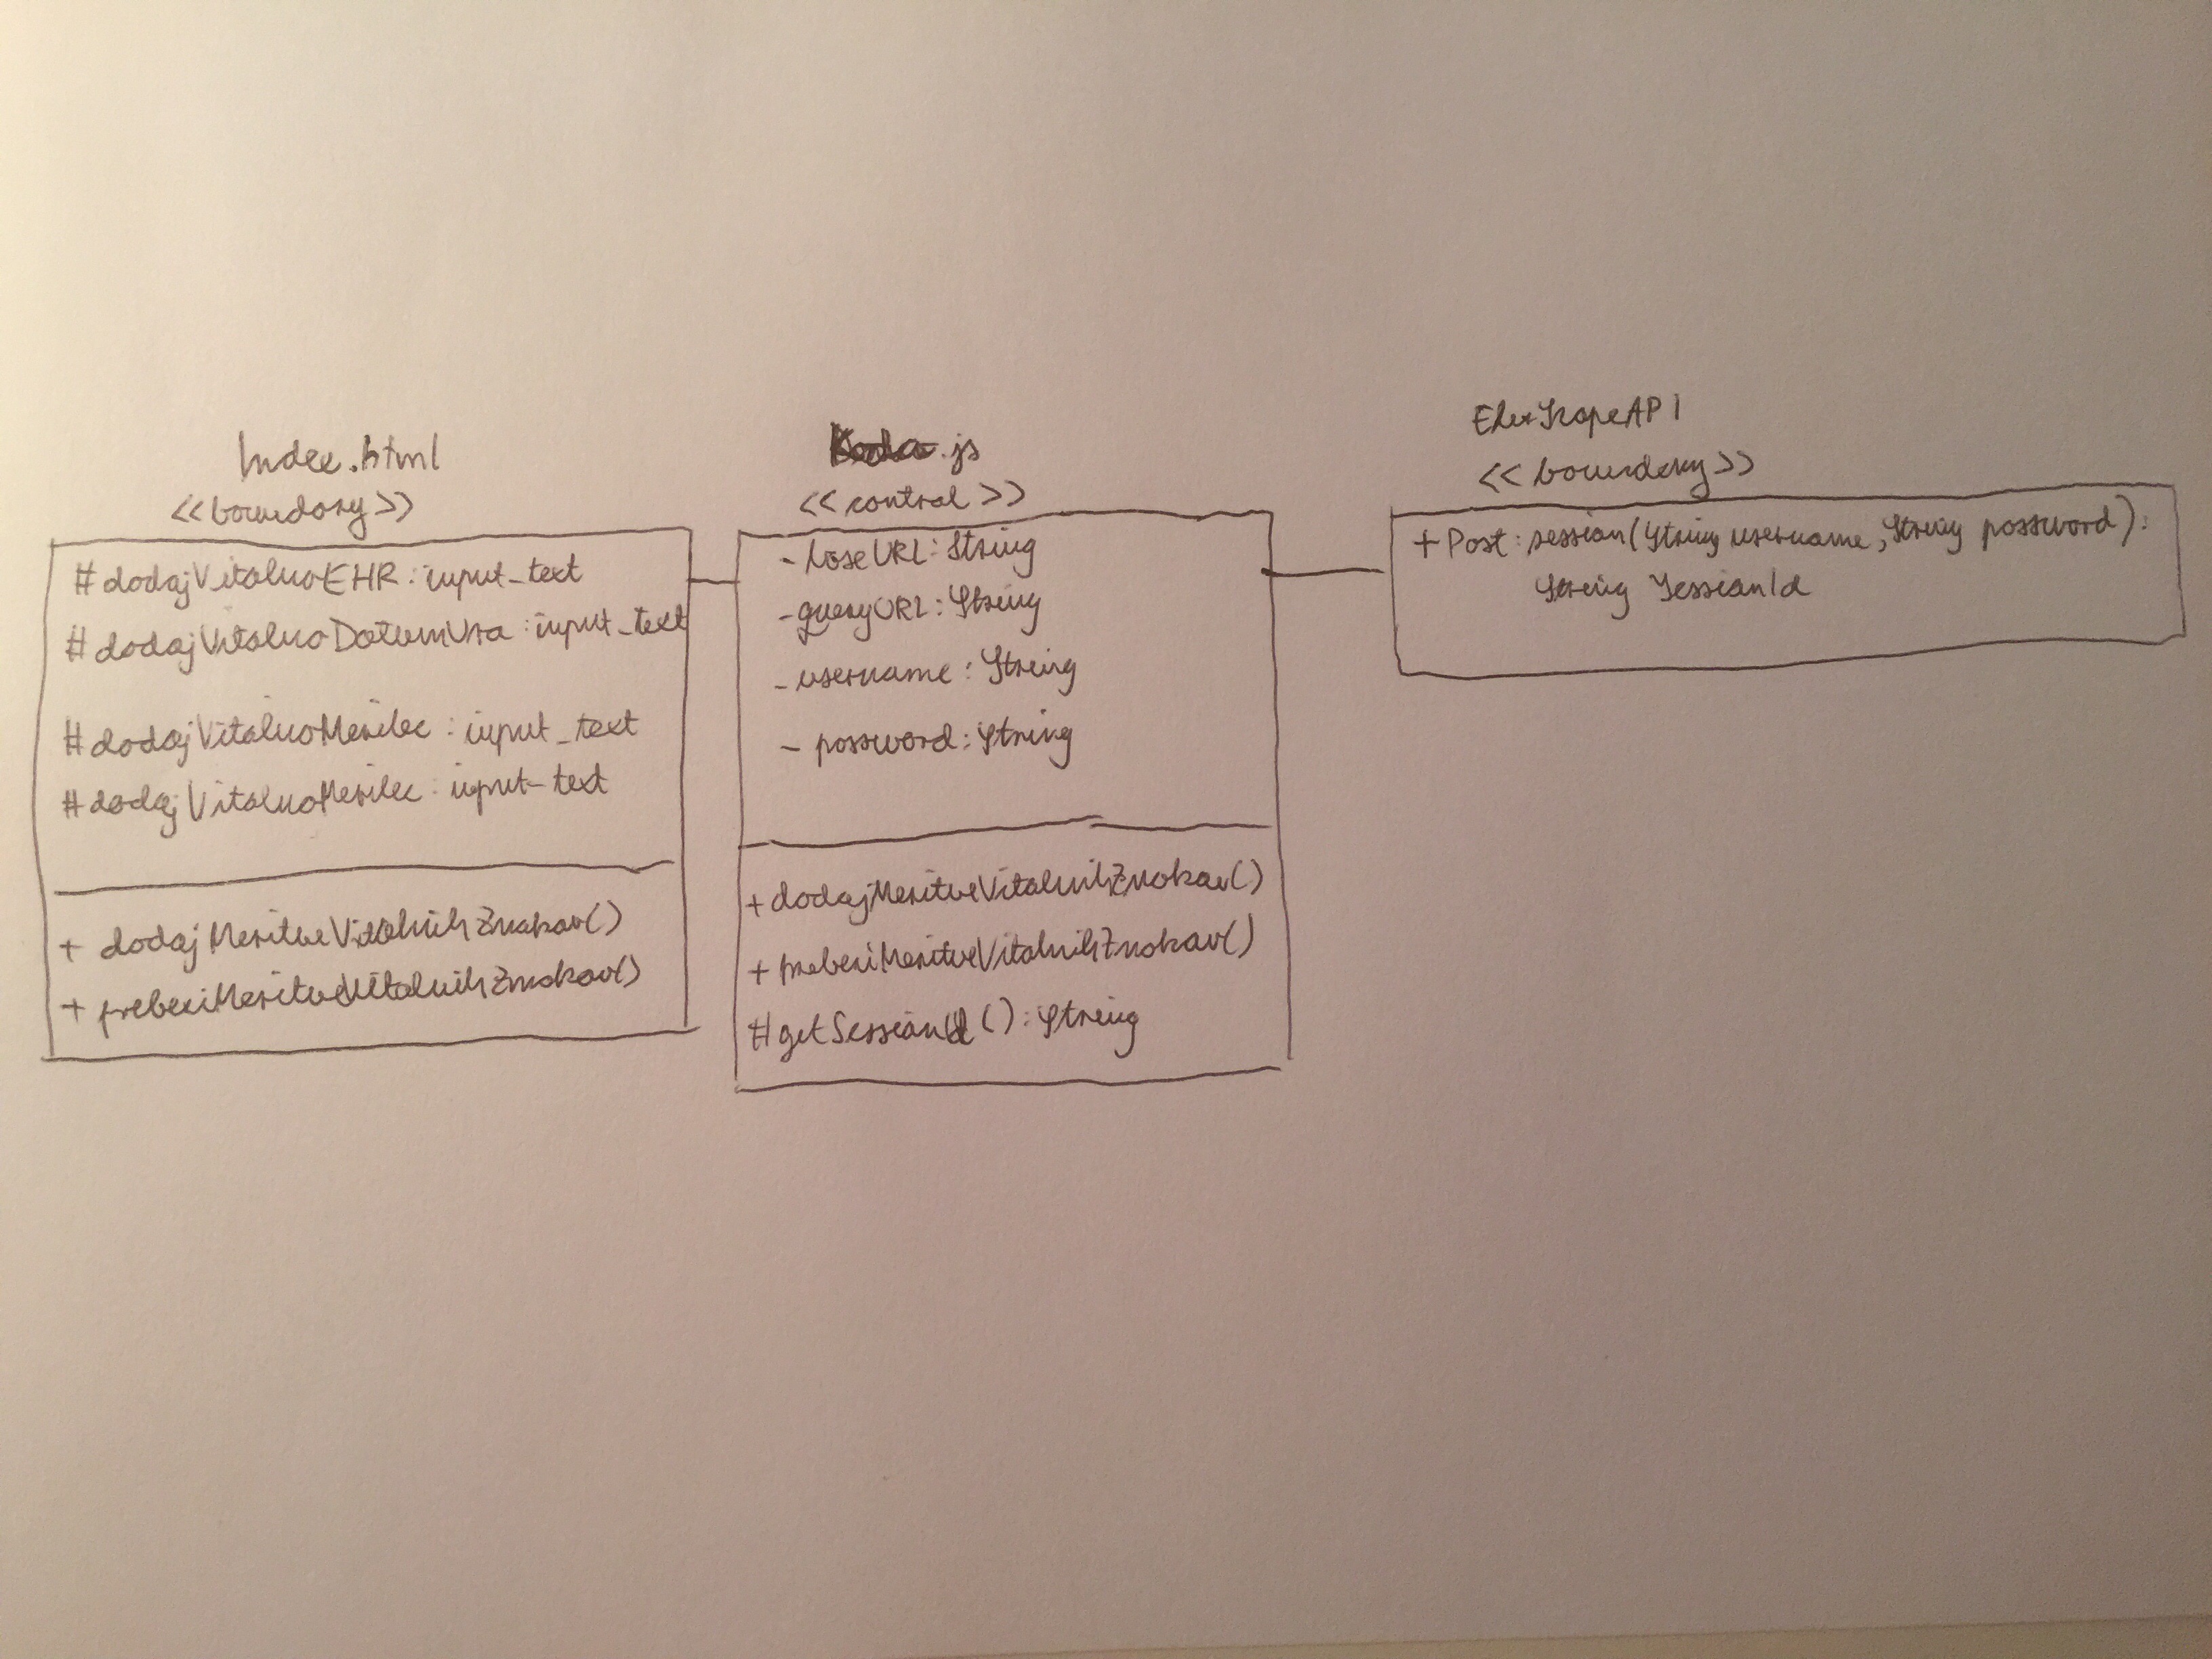 Index.html
<<boundary>>
#dodajVitalnoEHR : input_text
#dodajVitalnoDatumUra : input_text
#dodajVitalnoMerilec : input_text
#dodajVitalnoMerilec : input_text
+ dodajMeritveVitalnihZnakov()
+ preberiMeritveVitalnihZnakov()
Koda.js
<<control>>
- baseURL : String
- queryURL : String
- username : String
- password : String
+ dodajMeritveVitalnihZnakov()
+ preberiMeritveVitalnihZnakov()
#getSessionId() : String
EhrScapeAPI
<<boundary>>
+ Post : session(String username, String password) :
String SessionId